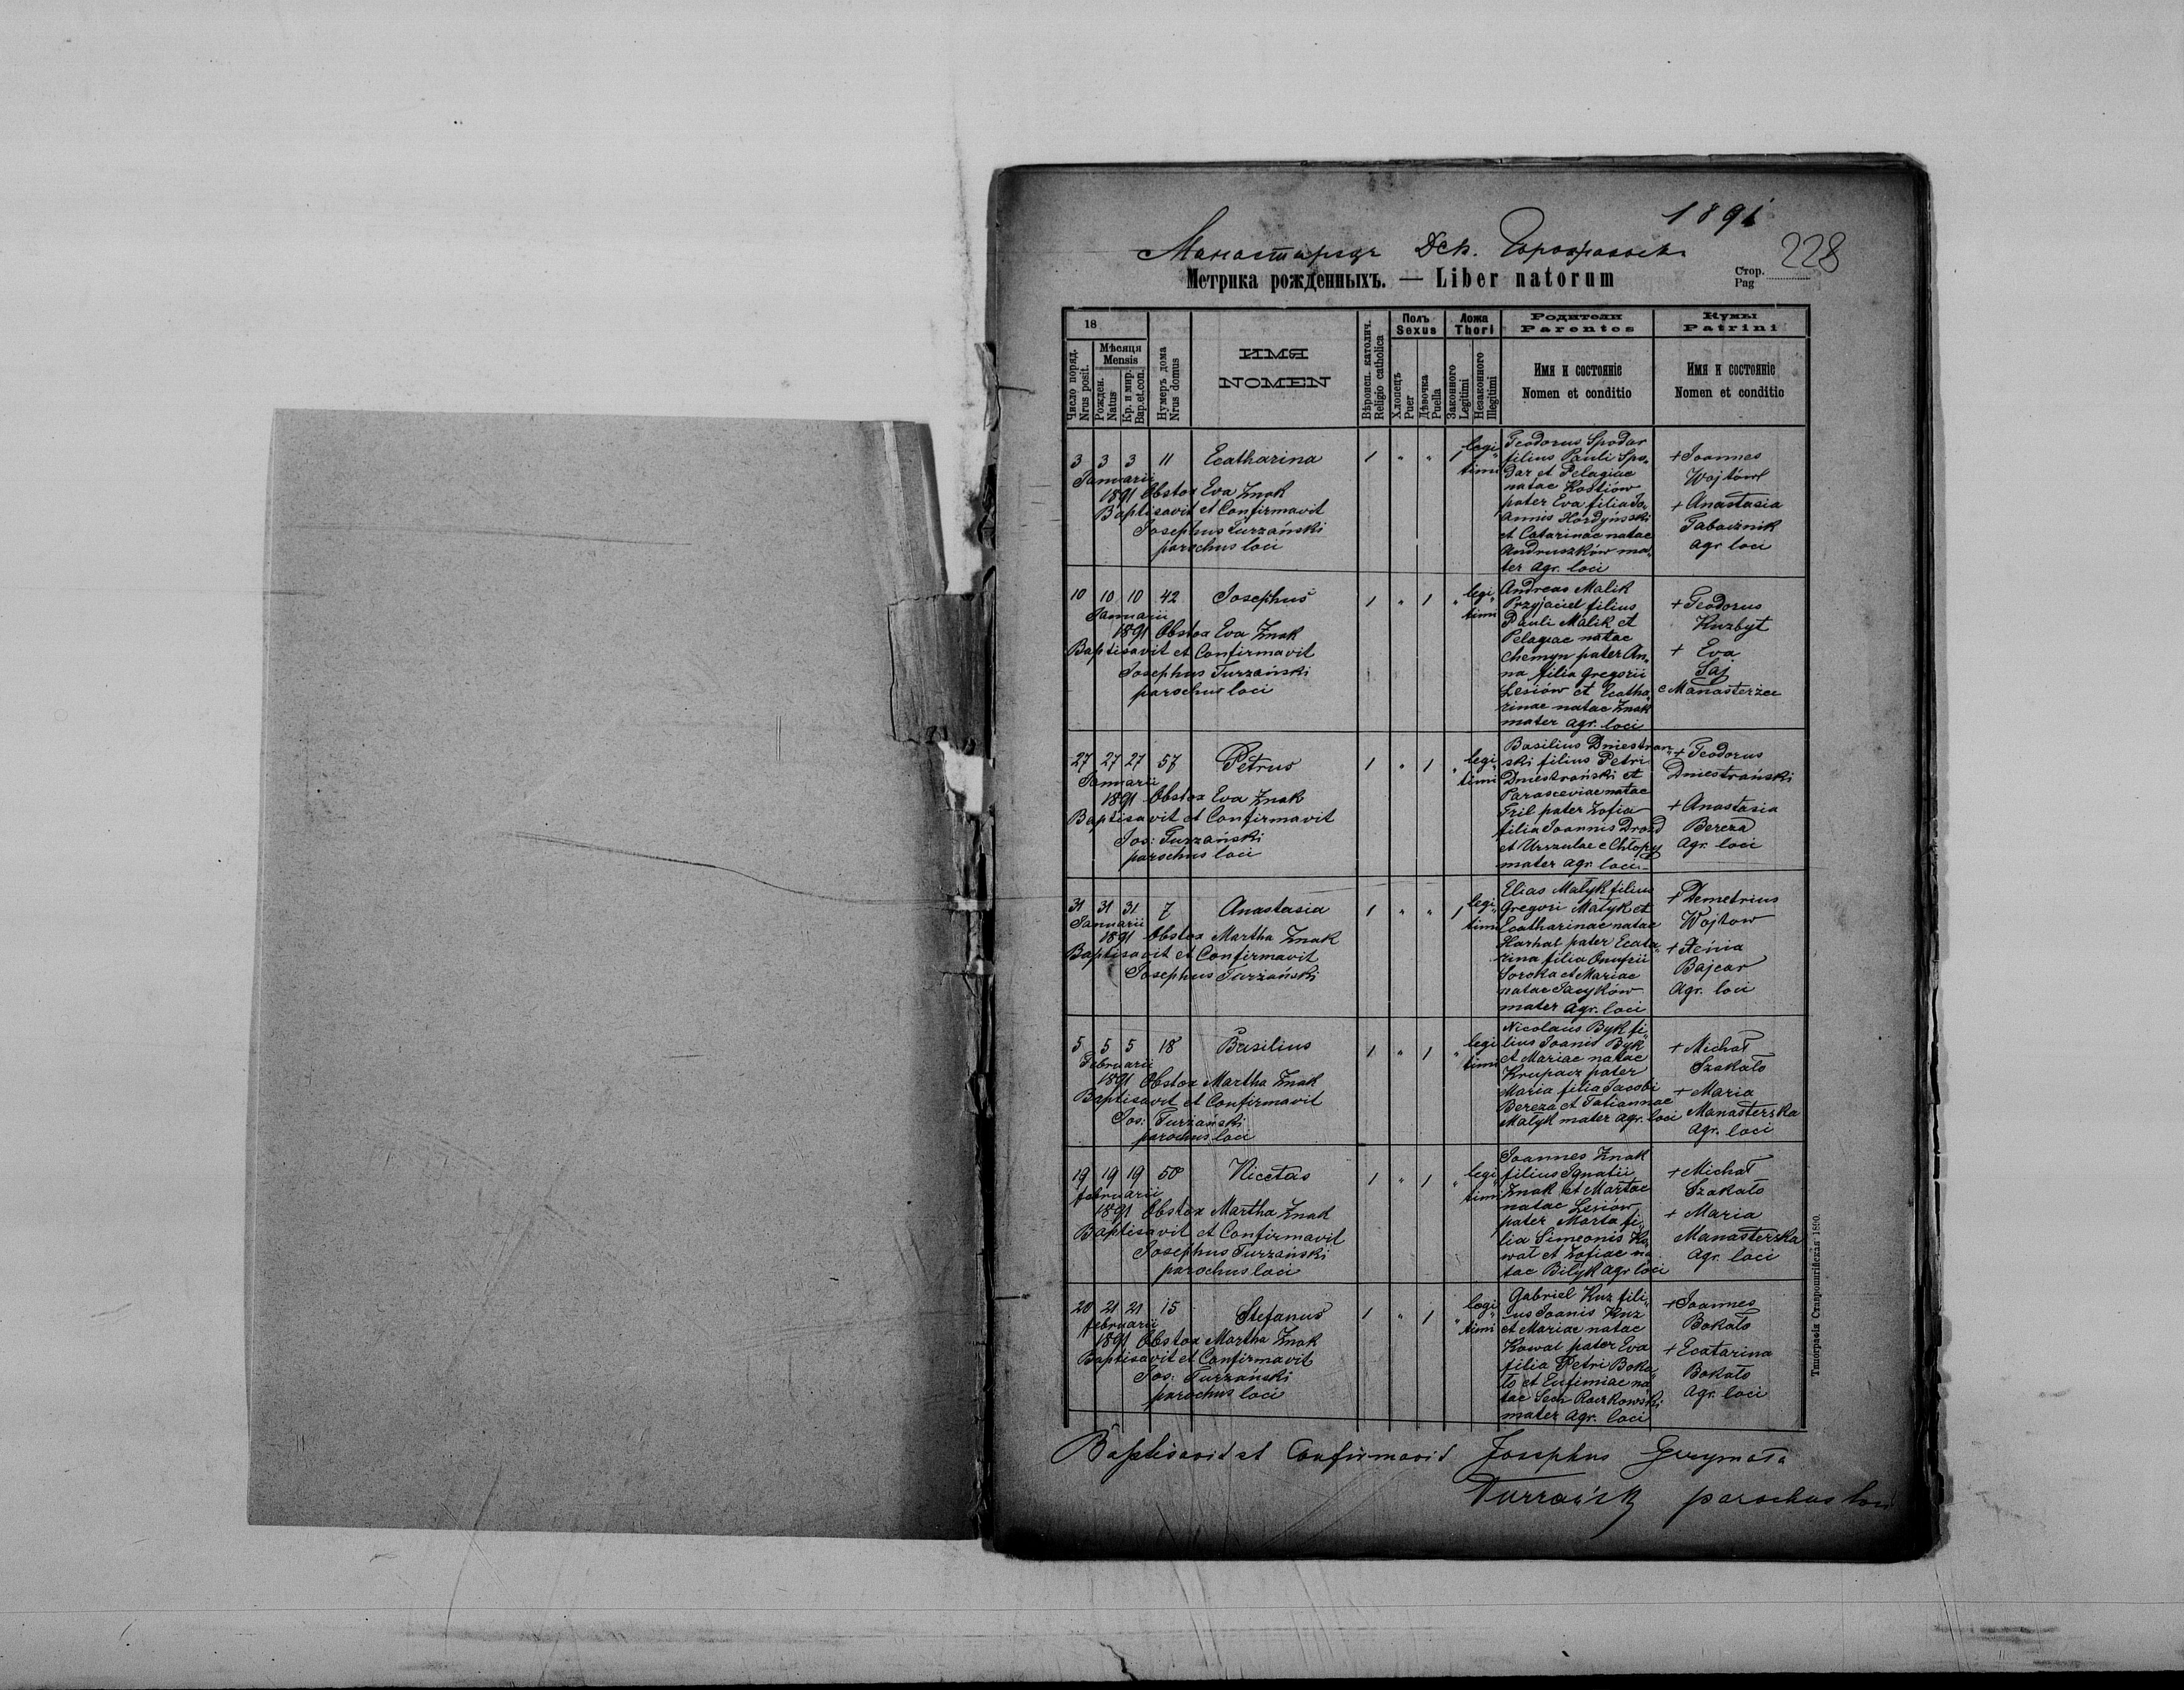 1891
Манастырець Дек.
228
Метрика рожденныхъ. — Liber natorum
Стор.
Pag
18
Мѣсяця
Mensis
Число поряд.
Nrus posit.
Рожден.
Natus
Кр. и мир.
Bap.et.con.
Нумеръ дома
Nrus domus
ИМЯ
NOMEN
Вѣроисп. католич.
Religio catholica
Полъ
Sexus
Хлопецъ
Puer
Дѣвочка
Puella
Ложа
Thori
Законного
Legitimi
Незаконного
Illegitimi
Родители
Parentes
Имя и состояніе
Nomen et conditio
Кумы
Patrini
Имя и состояніе
Nomen et conditio
3 3 3 11 Ecatharina 1 " " 1 legi„
timi
Januarii
1891 Obstox Eva Znak
Baptisavit et Confirmavit
Josephus Turzański
parochus loci
Teodorus Spodar
filius Pauli Spo„
dar et Pelagiae
natae Kostiów
pater Eva filia Jo„
annis Hordyński
et Catarinae natae
Andruszków ma„
ter agr. loci
+ Joannes
Wojtów
+ Anastasia
Tabacznik
agr loci
10 10 10 42 Josephus 1 " 1 " legi„
timi
Januarii
1891 Obstox Eva Znak
Baptisavit et Confirmavit
Josephus Turzański
parochus loci
Andreas Malik
Przyjaciel filius
Pauli Malik et
Pelagiae natae
Chemyn pater An„
na filia Gregorii
Lesiów et Ecatha„
rinae natae Znak
mater agr. loci
+ Teodorus
Kuzbyt
+ Eva
Saj
e Manasterzec
27 27 27 57 Petrus 1 " 1 " legi„
timi
Januarii
1891 Obstox Eva Znak
Baptisavit et Confirmavit
Jos: Turzański
parochus loci
Basilius Dniestrań„
ski filius Petri
Dniestrański et
Parasceviae natae
Fril pater Zofia
filia Joannis Drozd
et Urszulae e Chłopy
mater agr. loci
+ Teodorus
Dniestrański
+ Anastasia
Bereza
agr. loci
31 31 31 7 Anastasia 1 " " 1 legi„
timi
Januarii
1891 Obstox Martha Znak
Baptisavit et Confirmavit
Josephus Turzański
Elias Małyk filius
Gregori Małyk et
Ecatharinae natae
Harhal pater Ecata„
rina filia Onufrii
Soroka et Mariae
natae Jacyków
mater agr. loci
+ Demetrius
Wojtow
+ Xenia
Bajcar
Agr. loci
5 5 5 18 Basilius 1 " 1 " legi
timi
Februarii
1891 Obstox Martha Znak
Baptisavit et Confirmavit
Jos: Turzański
parochus loci
Nicolaus Byk fi„
lius Joanis Byk
et Mariae natae
Krupacz pater
Maria filia Jacobi
Bereza et Tatiannae
Małyk mater agr. loci
+ Michał
Szakało
+ Maria
Manasterska
Agr. loci
19 19 19 50 Nicetas 1 " 1 " legi„
timi
februarii
1891 Obstox Martha Znak
Baptisavit et Confirmavit
Josephus Turzański
parochus loci
Joannes Znak
filius Ignatii
Znak et Martae
natae Lesiów
pater Marta fi„
lia Simeonis Ko„
wal et Zofiae na
tae Bilyk agr loci
+ Michał
Szakało
+ Maria
Manasterska
agr. loci
20 21 21 15 Stefanus 1 " 1 " legi„
timi
februarii
1891 Obstox Martha Znak
Baptisavit et Confirmavit
Jos: Turzański
parochus loci
Gabriel Kuz fili„
us Joanis Kuz
et Mariae natae
Kowal pater Eva
filia Petri Boka„
ło et Eufimiae na„
tae Sech Raczkowski
mater agr. loci
+ Joannes
Bokało
+ Ecatarina
Bokało
agr. loci
Типографія Ставропигійская 1890.
Baptisavit et Confirmavit Josephus Grzymała
Turzański parochus loci